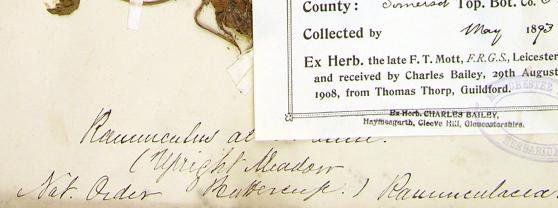 County: Somerset Top. Bot. Co.
Collected by
May 1893
Ex Herb. the late F. T. Mott, F.R.G.S., Leicester
and received by Charles Bailey, 29th August
1908, from Thomas Thorp, Guildford.
Ex-Herb. CHARLES BAILEY,
Haymesgarth, Cleeve Hill, Gloucestershire.
Ranunculus
(Upright Meadow
Nat. Order Buttercup.) Ranunculaceae